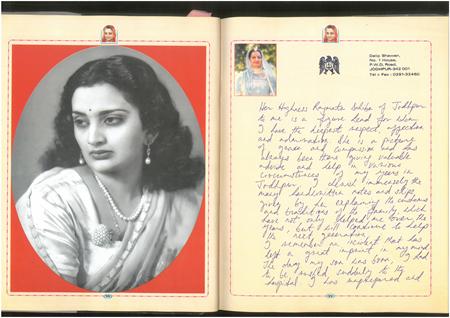 Dalip Bhawan,
No. 1 House,
P.W.D. Road,
JODHPUR-342 001
Tel + Fax : 0291-33460
Her Highness Rajmata Sahiba of Jodhpur
to me is a figure head for whom
I have the deepest respect, affection
and admiration. She is a
of grace and compassion and has
always been there giving valuable
advice and help in various
circumstances of my years in
Jodhpur. I cherish immensely the
many handwritten notes and slips
given by her explaining the customs
and traditions of the family which
have not only helped me over the
years, but will continue to help
the next generation.
I remember an incident that has
left a great imprint in my mind.
The day my son was born, I had
to be rushed suddenly to the
hospital. I was unprepared and